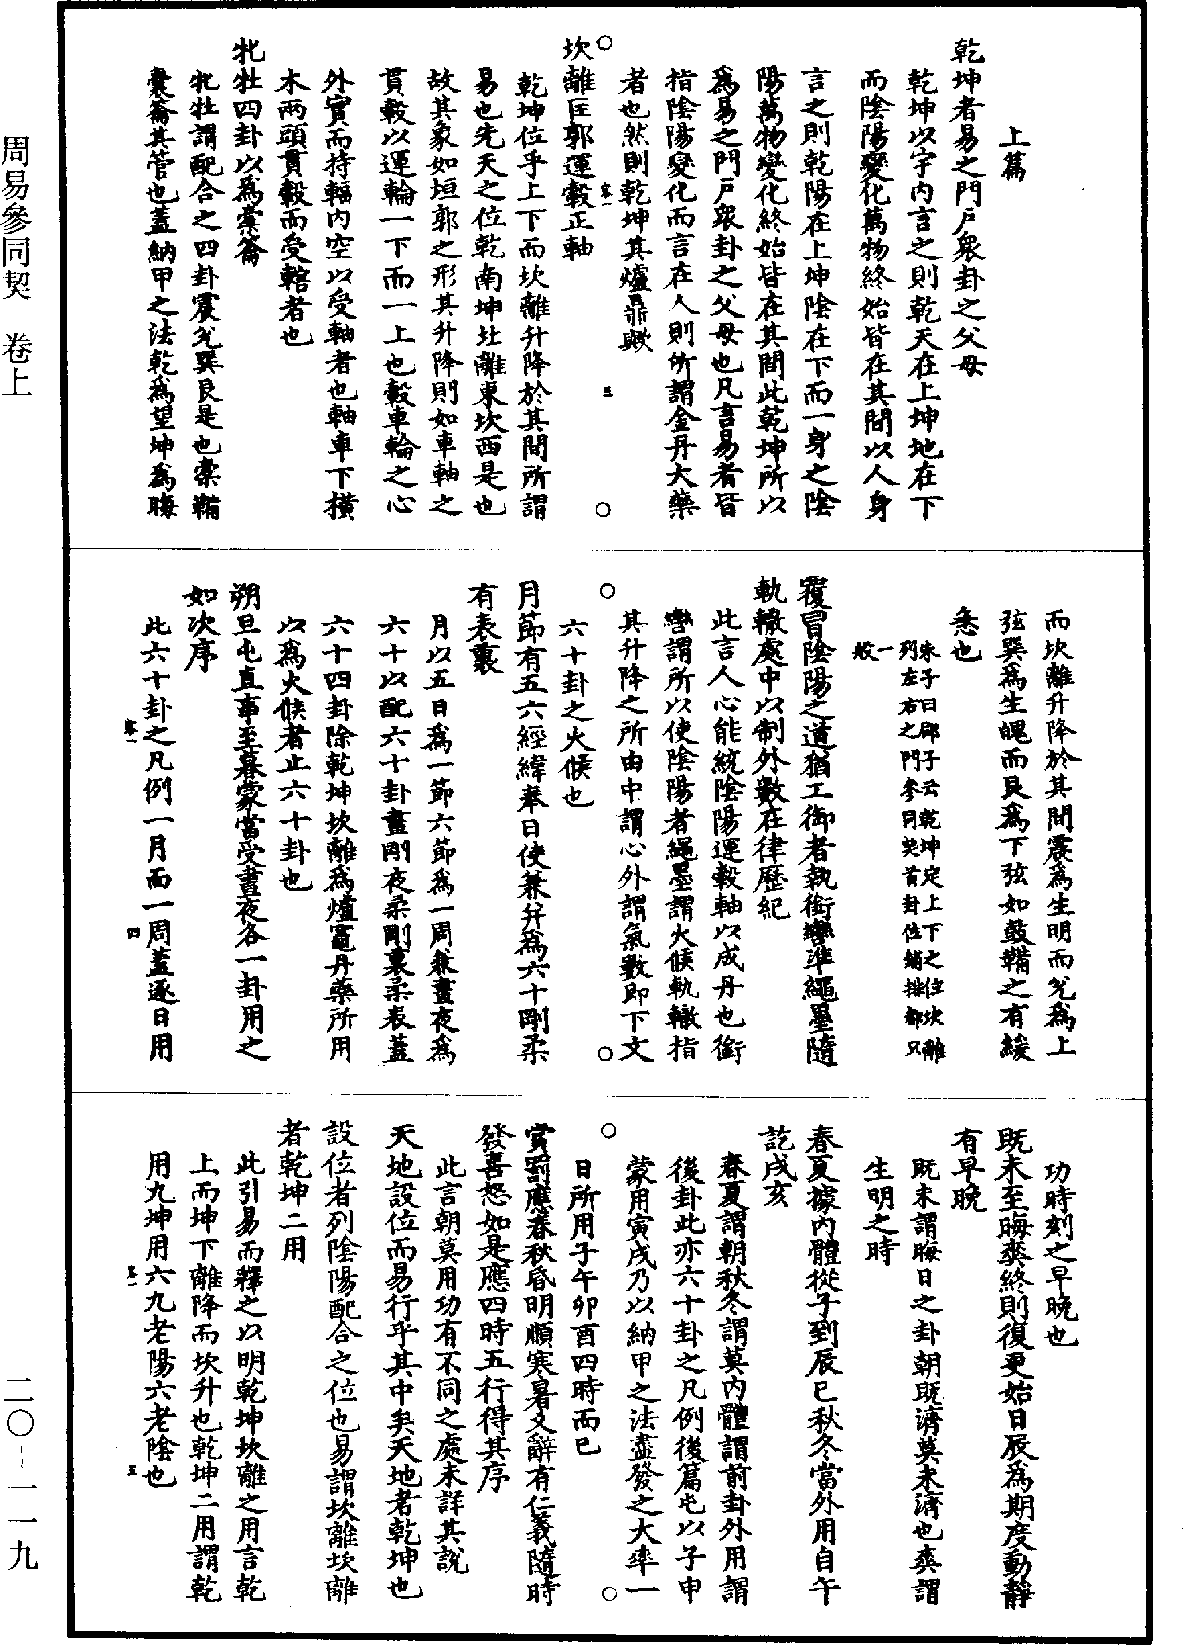 上篇
乾坤者易之門戶衆卦之父母
乾坤以宇內言之則乾天在上坤地在下
而陰陽變化萬物終始皆在其間以人身
言之則乾陽在上坤陰在下而一身之陰
陽萬物變化終始皆在其間此乾坤所以
爲易之門戶衆卦之父母也凡言易者皆
指陰陽變化而言在人則所謂金丹大藥
者也然則乾坤其爐鼎歟
卷一 三
坎離匡郭運轂正軸
乾坤位乎上下而坎離升降於其間所謂
易也先天之位乾南坤北離東坎西是也
故其象如垣郭之形其升降則如車軸之
貫轂以運輪一下而一上也轂車輪之心
外實而持輻內空以受軸者也軸車下橫
木兩頭貫轂而受轄者也
牝牡四卦以爲橐籥
牝牡謂配合之四卦震兌巽艮是也橐鞴
囊籥其管也蓋納甲之法乾爲望坤爲晦
而坎離升降於其間震爲生明而兌爲上
弦巽爲生魄而艮爲下弦如鼓鞴之有緩
急也
朱子曰邵子云乾坤定上下之位坎離
列左右之門參同契首卦位鋪排都只
一般
覆冒陰陽之道猶工御者執銜轡準繩墨隨
軌轍處中以制外數在律歷紀
此言人心能統陰陽運轂軸以成丹也銜
轡謂所以使陰陽者繩墨謂火候軌轍指
其升降之所由中謂心外謂氣數即下文
六十卦之火候也
月節有五六經緯奉日使兼并爲六十剛柔
有表裏
月以五日爲一節六節爲一周兼晝夜爲
六十以配六十卦晝剛夜柔剛裏柔表蓋
六十四卦除乾坤坎離爲爐竈丹藥所用
以爲火候者止六十卦也
朔旦屯直事至暮蒙當受晝夜各一卦用之
如次序
此六十卦之凡例一月而一周蓋逐日用
卷一 四
功時刻之早晚也
既未至晦爽終則復更始日辰爲期度動靜
有早晚
既未謂晦日之卦朝既濟莫未濟也爽謂
生明之時
春夏據內體從子到辰巳秋冬當外用自午
訖戌亥
春夏謂朝秋冬謂莫內體謂前卦外用謂
後卦此亦六十卦之凡例後篇屯以子申
蒙用寅戌乃以納甲之法盡發之大率一
日所用子午卯酉四時而已
賞罰應春秋昏明順寒暑爻辭有仁義隨時
發喜怒如是應四時五行得其序
此言朝莫用功有不同之處未詳其說
天地設位而易行乎其中矣天地者乾坤也
設位者列陰陽配合之位也易謂坎離坎離
者乾坤二用
此引易而釋之以明乾坤坎離之用言乾
上而坤下離降而坎升也乾坤二用謂乾
用九坤用六九老陽六老陰也
卷一 五
周易參同契 卷上
二〇--一一九